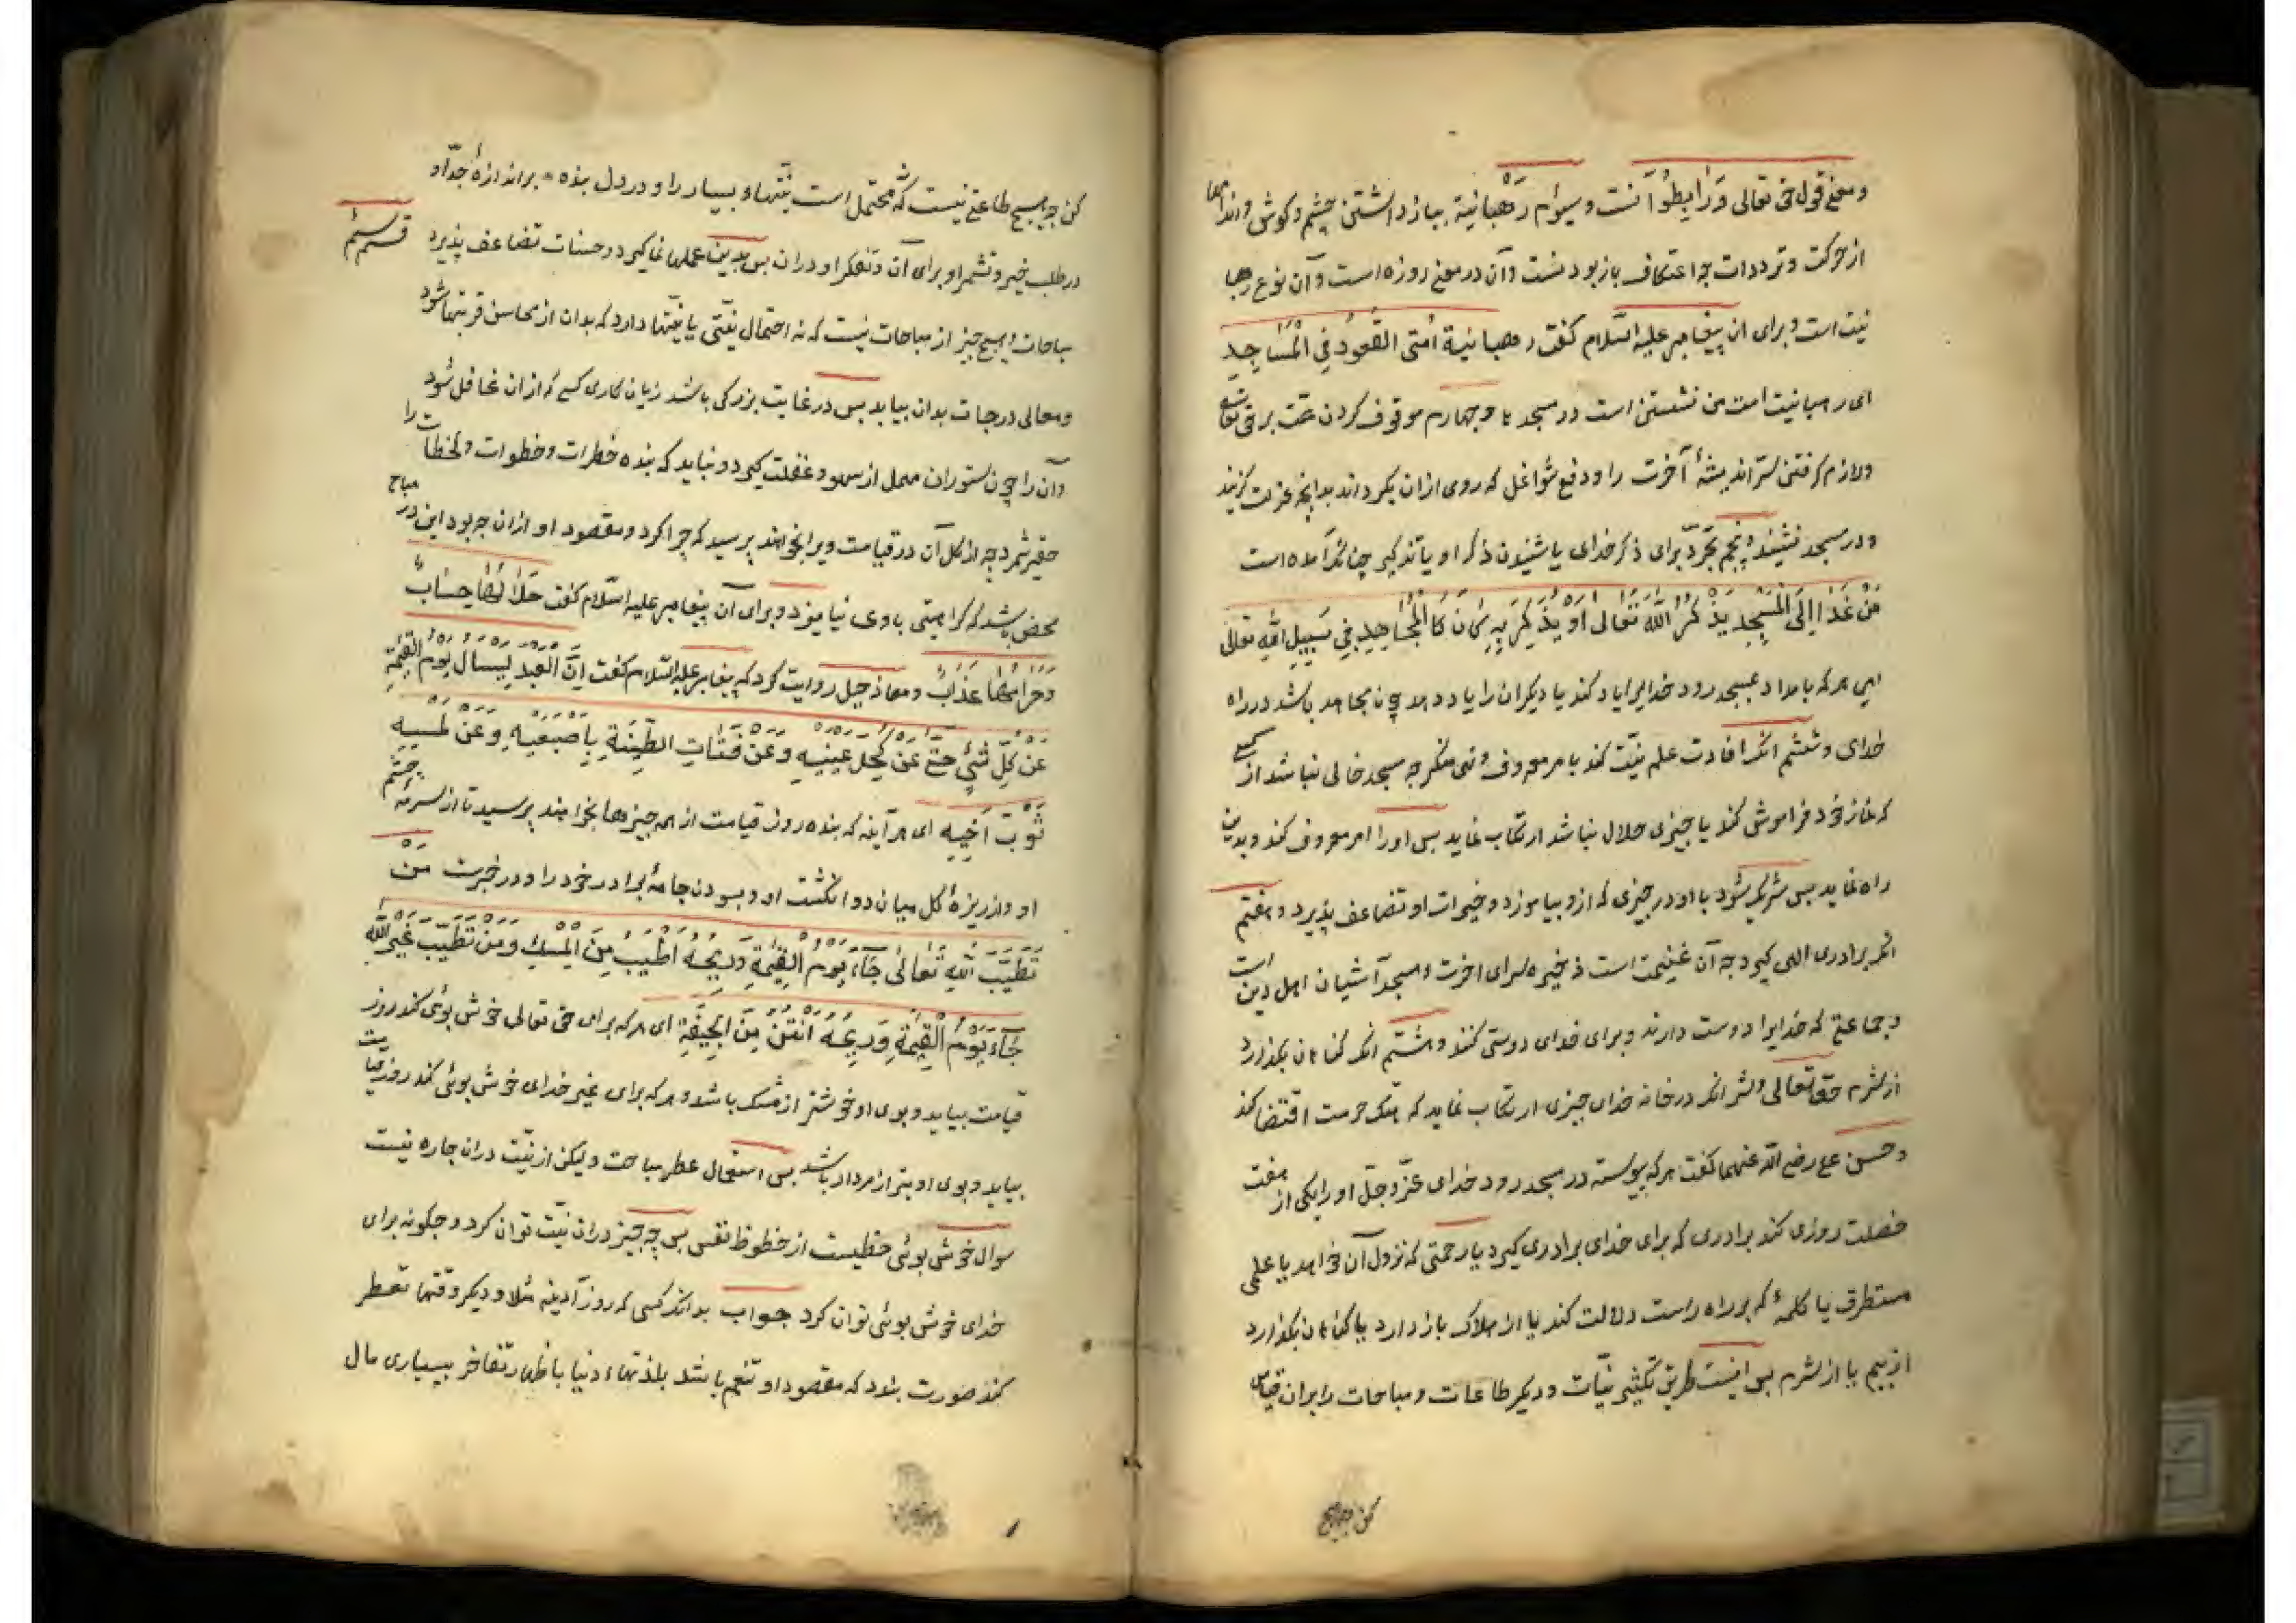 ومعنی قول حق تعالی وَرَابِطُوا آنست و سیوم رَهْبانیة بباز داشتن چشم و کوش و اندامها
از حرکت و ترددات چه اعتکاف باز بودنست و آن در معنی روزه است و آن نوع رهبا
نیت است و برای ان پیغامبر علیه السّلام کفت رهبانیة أمتی القُعُودُ فِی الْمَسَاجِدِ
ای رهبانیت امت من نشستن است در مسجدها و چهارم موقوف کردن همت بر حق تعالی
ولازم کرفتن سرّ اندیشهٔ آخرت را و دفع شواغل که روی ازان بکرداند بدانچه عزلت کزیند
و در مسجد نشیند و پنجم تجرّد برای ذکر خدای یا شنیدن ذکر او یا تذکیر چنانکه آمده است
مَنْ غَدَا إِلَی الْمَسْجِدِ یَذْکُرُ اللّٰهَ تَعَالی أَوْ یُذَکِّرُ بِهِ کَانَ کَالْمُجَاهِدِ فِی سَبِیلِ اللّٰهِ تعالی
ای هر که بامداد بمسجد رود خدایرا یاد کند یا دیکران را یاد دهد چون مجاهد باشد در راه
خدای و ششم انکه افادت علم نیّت کند بامر معروف و نهی منکر چه مسجد خالی نباشد از کسی
که نماز خود فراموش کند یا چیزی حلال نباشد ارتکاب نماید پس او را امر معروف کند و بدین
راه نماید پس شریک شود با او در چیزی که ازو بیاموزد و خیرات او تضاعف پذیرد و هفتم
انکه برادری الهی کیرد چه آن غنیمت است ذخیره سرای اخرت و مسجد آشیان اهل دین است
و جماعتی که خدایرا دوست دارند و برای خدای دوستی کنند و هشتم انکه کناهان بکذارد
از شرم حق تعالی و شر انکه در خانه خدای چیزی ارتکاب نماید که هتک حرمت اقتضا کند
و حسن علی رضی الله عنهما کفت هر که پیوسته در مسجد رود خدای عزّوجلّ او را یکی از هفت
خصلت روزی کند برادری که برای خدای برادری کیرد یا رحمتی که نزول آن خواهد یا علمی
مستطرف یا کلمهٔ که بر راه راست دلالت کند یا از هلاک باز دارد یا کناهان بکذارد
از بیم یا از شرم پس اینست طریق تکثیر نیّات و دیکر طاعات و مباحات را بران قیاس
کن چه هیچ
کن چه هیچ طاعتی نیست که محتمل است نیّتهاء بسیار را و در دل بنده بر اندازهٔ جدّ او
در طلب خیر و تشمر او برای آن و تفکر او دران پس بدین عملها نماکیرد و حسنات تضاعف پذیرد قسم سیُم
مباحات و هیچ چیز از مباحات نیست که نه احتمال نیّتی یا نیّتها دارد که بدان از محاسن قربتها شود
و معالی درجات بدان بیابد پس در غایت بزرکی باشد زیان کاری کسی که ازان غافل شود
وآن را چون ستوران مهمل از سهو و غفلت کیرد و نباید که بنده خطرات و خطوات و لحظات را
حقیر شمرد چه از کل آن در قیامت ویرا بخواهند پرسید که چرا کرد و مقصود او ازان چه بود این در مباح
محض باشد که کراهیتی باوی نیامیزد و برای آن پیغامبر علیه السّلام کفت حَلَالُهَا حِسَابٌ
وَحَرَامُهَا عَذَابٌ و معاذ جبل روایت کرد که پیغامبر علیه السّلام کفت اِنَّ الْعَبْدَ لَیُسْأَلُ یَوْمَ الْقِیٰمَةِ
عَنْ کُلِّ شَیْءٍ حَتّٰی عَنْ کُحْلِ عَیْنَیْهِ وَعَنْ فُتَاتِ الطِّینَةِ بِأَصْبُعَیْهِ وَعَنْ لَمْسِهِ
ثَوْبَ أَخِیهِ ای هر آینه که بنده روز قیامت از همه چیزها بخواهند پرسید تا از سرمهٔ چشم
او و از ریزهٔ کل میان دو انکشت او و بسودن جامهٔ برادر خود را و در خبرست مَنْ
تَطَیَّبَ لِلّٰهِ تَعَالیٰ جَاءَ یَوْمَ الْقِیٰمَةِ وَرِیحُهُ أَطْیَبُ مِنَ الْمِسْکِ وَمَنْ تَطَیَّبَ لِغَیْرِ اللّٰهِ
جَاءَ یَوْمَ الْقِیٰمَةِ وَرِیحُهُ أَنْتَنُ مِنَ الْجِیفَةِ ای هر که برای حق تعالی خوش بوئی کند روز
قیامت بیاید و بوی او خوشتر از مشک باشد و هر که برای غیر خدای خوش بوئی کند روز قیامت
بیاید و بوی او بتر از مردار باشد پس استعمال عطر مباحت و لیکن از نیّت دران چاره نیست
سوال خوش بوئی حظیست از حظوظ نفس پس چه چیز دران نیّت توان کرد و چکونه برای
خدای خوش بوئی توان کرد جواب بدانکه کسی که روز آدینه مثلا و دیکر وقتها تعطر
کند صورت بندد که مقصود او تنعم باشد بلذتهاء دنیا با ظهار تفاخر ببسیاری مال